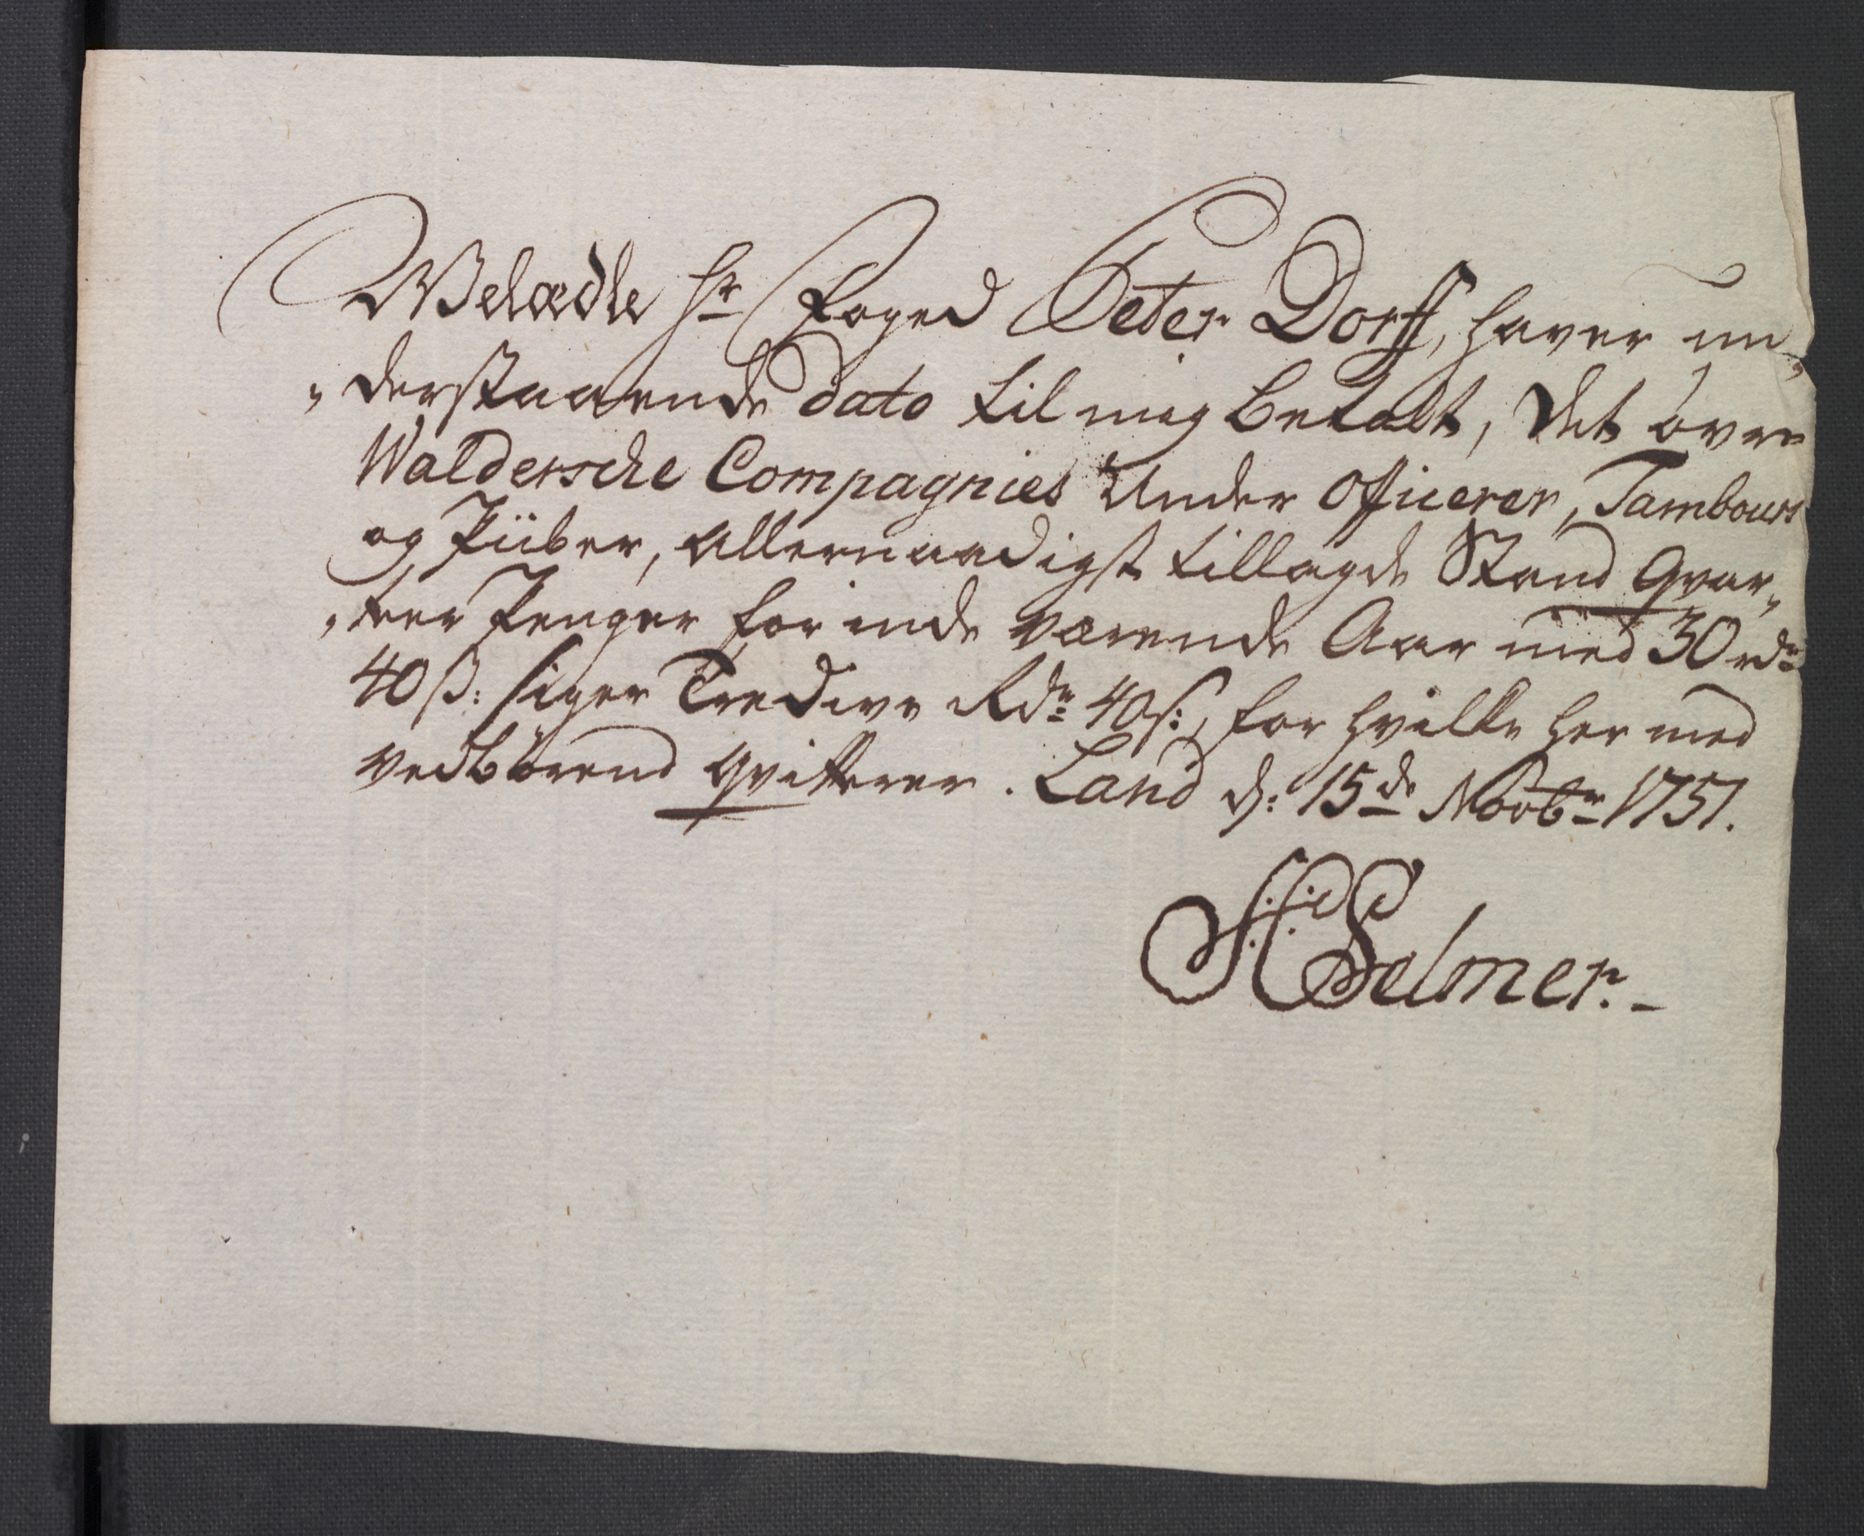 Welædle Hr Foged Peter Dorff, haver un„
„derstaaende dato til mig betalt, det øvre
Waldersche Compagnies Under Officerer, Tambours
og Piiber, allernaadigst tillagde Stand Qvar„
„teer Penger for inde værende Aar med 30 rdr
40 ß: siger Tredive Rdr 40 s:, for hvilke her med
vedbørend qvitterer. Land d: 15de Novbr 1751.
H Selmer.